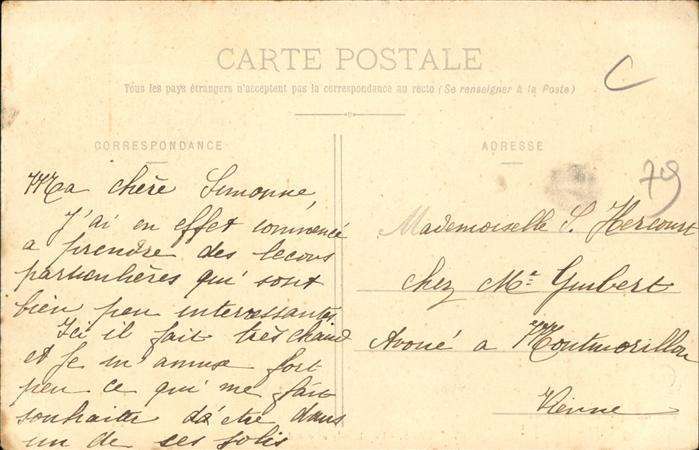 CARTE POSTALE
Tous les pays étrangers n'acceptent pas la correspondance au recto (Se renseigner à la Poste)
C
CORRESPONDANCE
Ma chère Simonne,
J'ai en effet commencé
a prendre des lecons
particulières qui sont
bien peu interessantes
Ici il fait très chaud
et je m'amuse fort
peu ce qui me fait
souhaiter d'être dans
un de ces jolis
ADRESSE
79
Mademoiselle S. Hercourt
chez Mr Guibert
Avoué a Montmorillon
Vienne